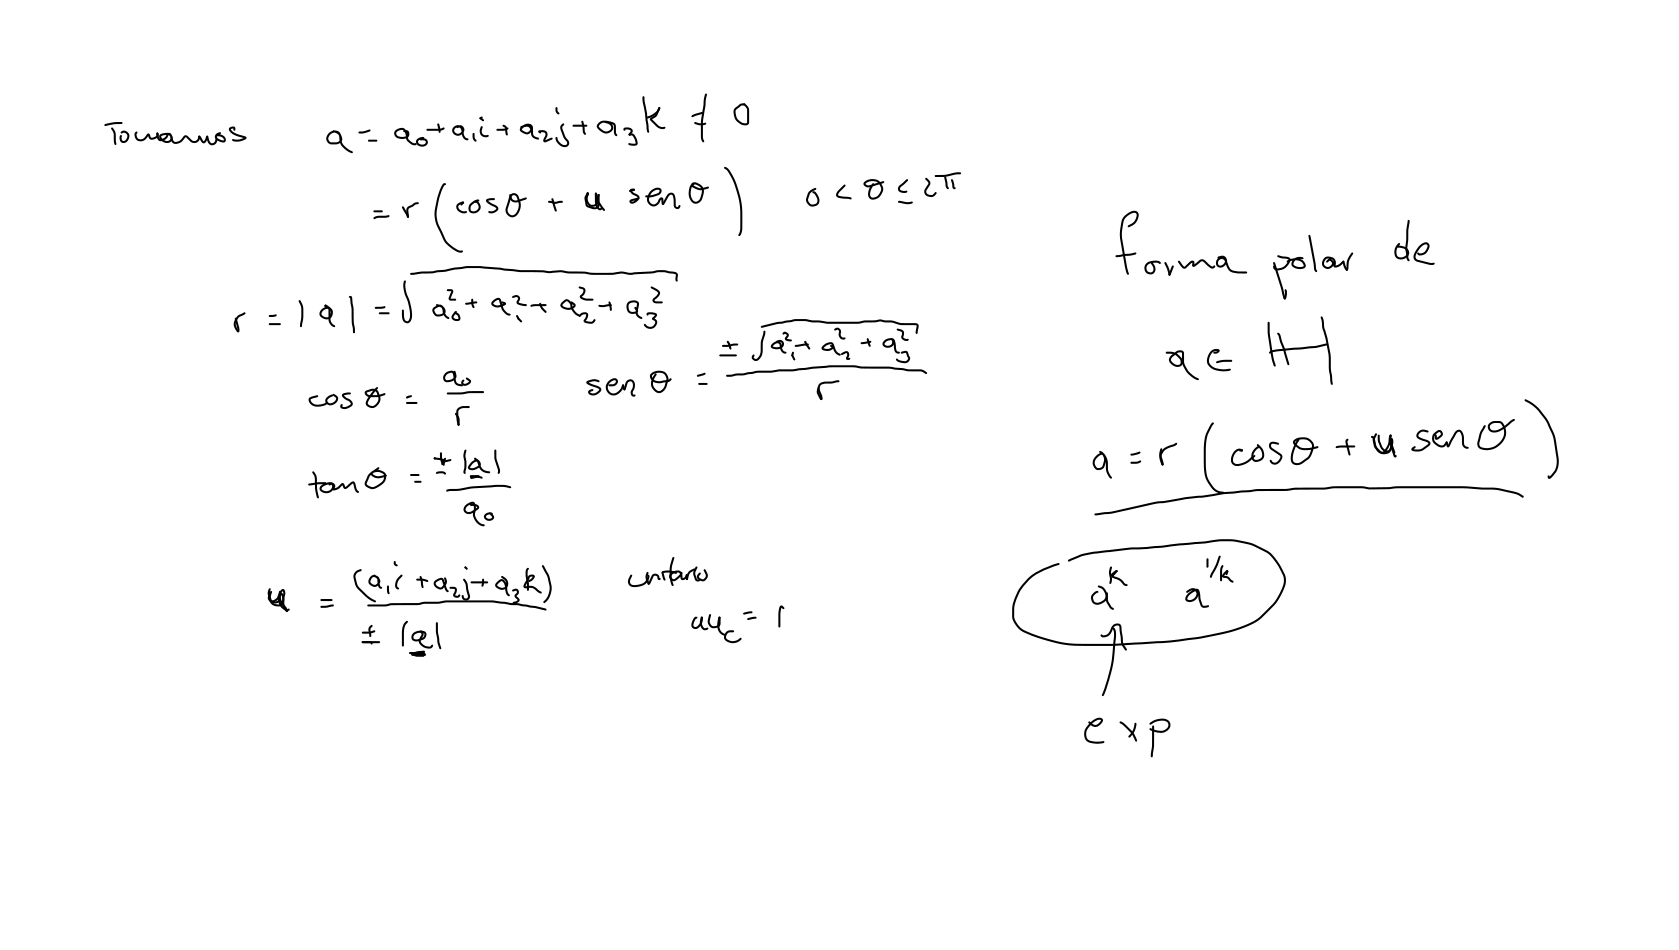 Tomamos a = a₀ + a₁i + a₂j + a₃k ≠ 0
= r (cos θ + u sen θ) 0 < θ ≤ 2π
r = |a| = √(a₀² + a₁² + a₂² + a₃²)
cos θ = a₀/r sen θ = ±√(a₁² + a₂² + a₃²)/r
tan θ = ±|a̲|/a₀
u = (a₁i + a₂j + a₃k)/±|a̲| unitario
uu_c = 1
forma polar de
a ∈ ℍ
a = r (cos θ + u sen θ)
a^k a^{1/k}
exp